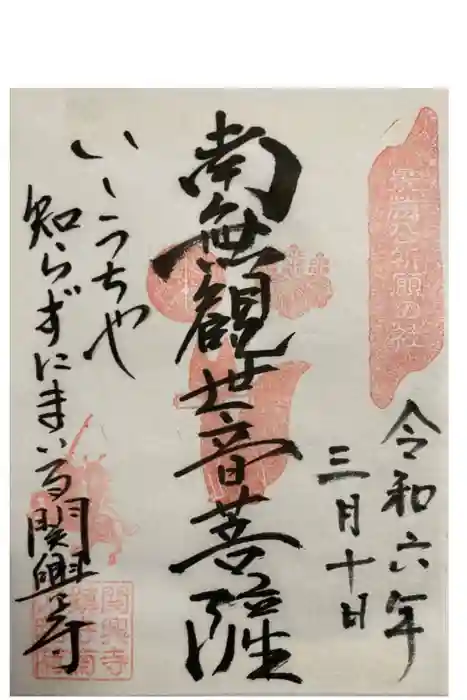 祈願の社
令和六年
三月十日
南無観世音菩薩
いしうちや
知らずにまいる関興寺
関興寺